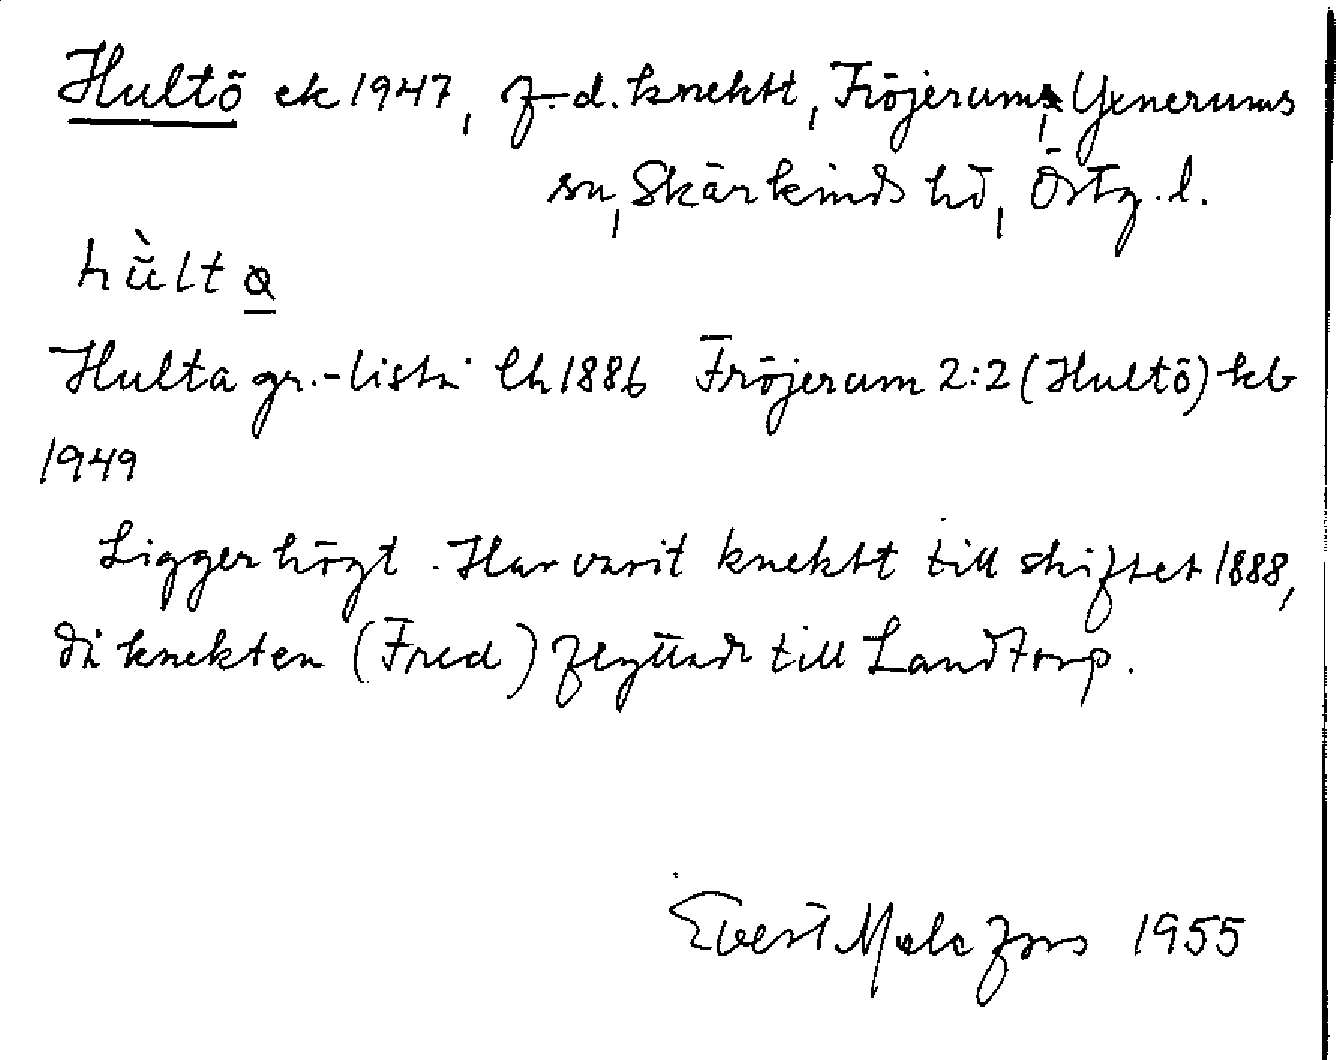 Hultö ek 1947, f.d. knektt, Fröjerum, Yxnerums
sn, Skärkinds hd, Östg.l.
hùlt
Hulta gr.-lista lh 1886 Fröjerum 2:2 (Hultö) kb
1949
Ligger högt. Har varit knektt till skiftet 1888,
då knekten (Fred) flyttade till Landtorp.
Evert Melefors 1955